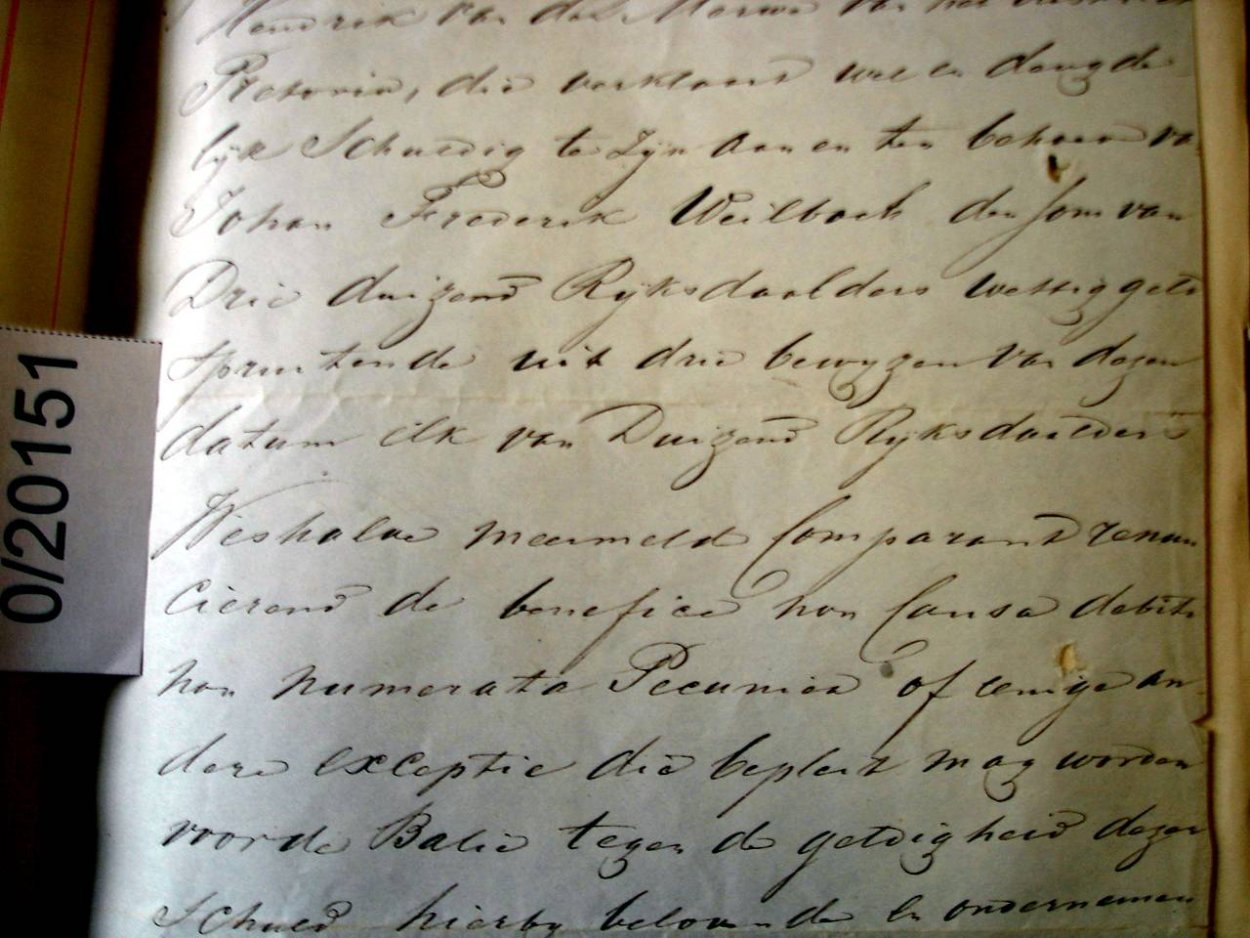 Hendrik van der Merwe van het district
Pretoria, die verklaard wel en deugde
lijk Schuldig te Zijn aan en ten behoeve va
Johan Frederik Weilbach de Som van
Drie duizend Rijksdaalders wettig geld
Spruitende uit drie bewyzen van dezen
datum elk van Duizend Ryksdaalders
Weshalve meermeld Comparant renun
Cierend de benefice non Causa debiti
non numerata Pecuniea of eenige an
dere exceptie die bepleit mag worden
voor de Balie tegen de geldigheid dezer
Schuld hierby belovende en ondernemen
0/20151